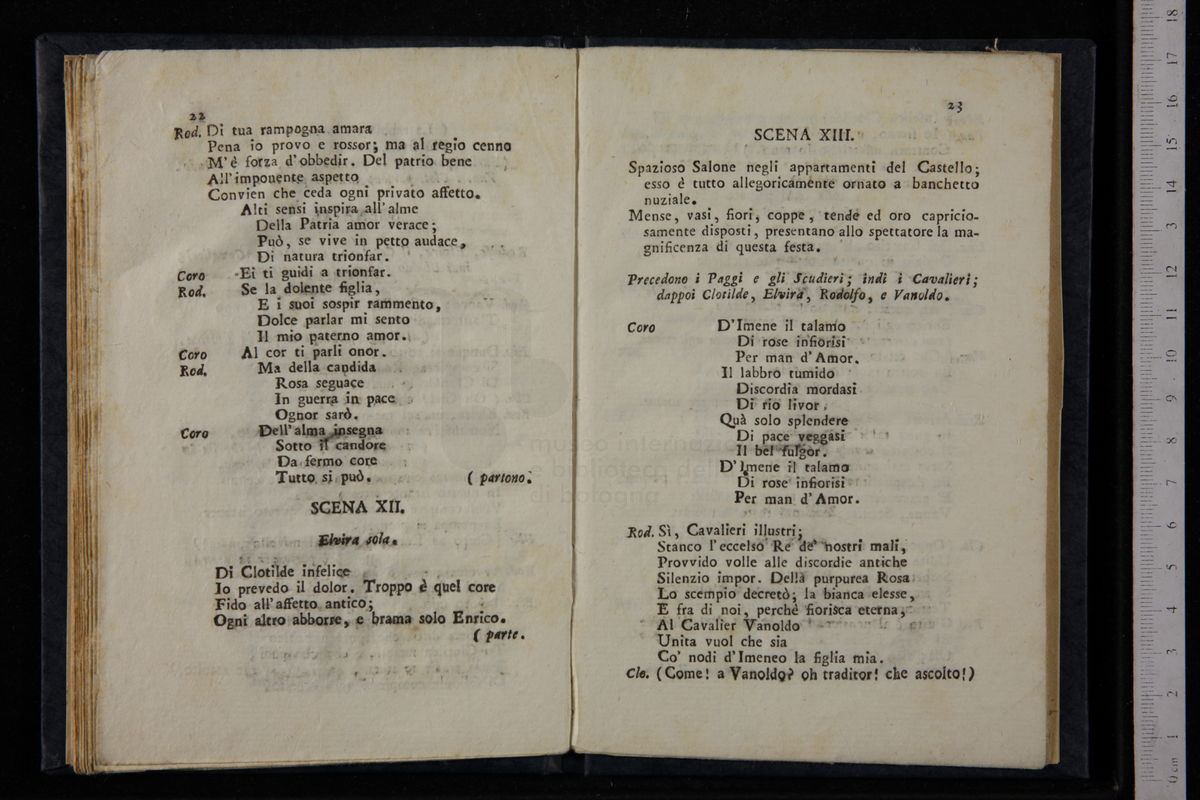 22
Rod. Di tua rampogna amara
Pena io provo e rossor; ma al regio cenno
M'è forza d'obbedir. Del patrio bene
All'imponente aspetto
Convien che ceda ogni privato affetto.
Alti sensi inspira all'alme
Della Patria amor verace;
Può, se vive in petto audace,
Di natura trionfar.
Coro Ei ti guidi a trionfar.
Rod. Se la dolente figlia,
E i suoi sospir rammento,
Dolce parlar mi sento
Il mio paterno amor.
Coro Al cor ti parli onor.
Rod. Ma della candida
Rosa seguace
In guerra in pace
Ognor sarò.
Coro Dell'alma insegna
Sotto il candore
Da fermo core
Tutto si può. ( partono.
SCENA XII.
Elvira sola.
Di Clotilde infelice
Io prevedo il dolor. Troppo è quel core
Fido all'affetto antico;
Ogni altro abborre, e brama solo Enrico.
( parte.
23
SCENA XIII.
Spazioso Salone negli appartamenti del Castello;
esso è tutto allegoricamente ornato a banchetto
nuziale.
Mense, vasi, fiori, coppe, tende ed oro capricio-
samente disposti, presentano allo spettatore la ma-
gnificenza di questa festa.
Precedono i Paggi e gli Scudieri; indi i Cavalieri;
dappoi Clotilde, Elvira, Rodolfo, e Vanoldo.
Coro D'Imene il talamo
Di rose infiorisi
Per man d'Amor.
Il labbro tumido
Discordia mordasi
Di rio livor.
Quà solo splendere
Di pace veggasi
Il bel fulgor.
D'Imene il talamo
Di rose infiorisi
Per man d'Amor.
Rod. Sì, Cavalieri illustri;
Stanco l'eccelso Re de' nostri mali,
Provvido volle alle discordie antiche
Silenzio impor. Della purpurea Rosa
Lo scempio decretò; la bianca elesse,
E fra di noi, perchè fiorisca eterna,
Al Cavalier Vanoldo
Unita vuol che sia
Co' nodi d'Imeneo la figlia mia.
Clo. (Come! a Vanoldo? oh traditor! che ascolto!)
museo internazio
e biblioteca della
di bologna
0 cm 1 2 3 4 5 6 7 8 9 10 11 12 13 14 15 16 17 18